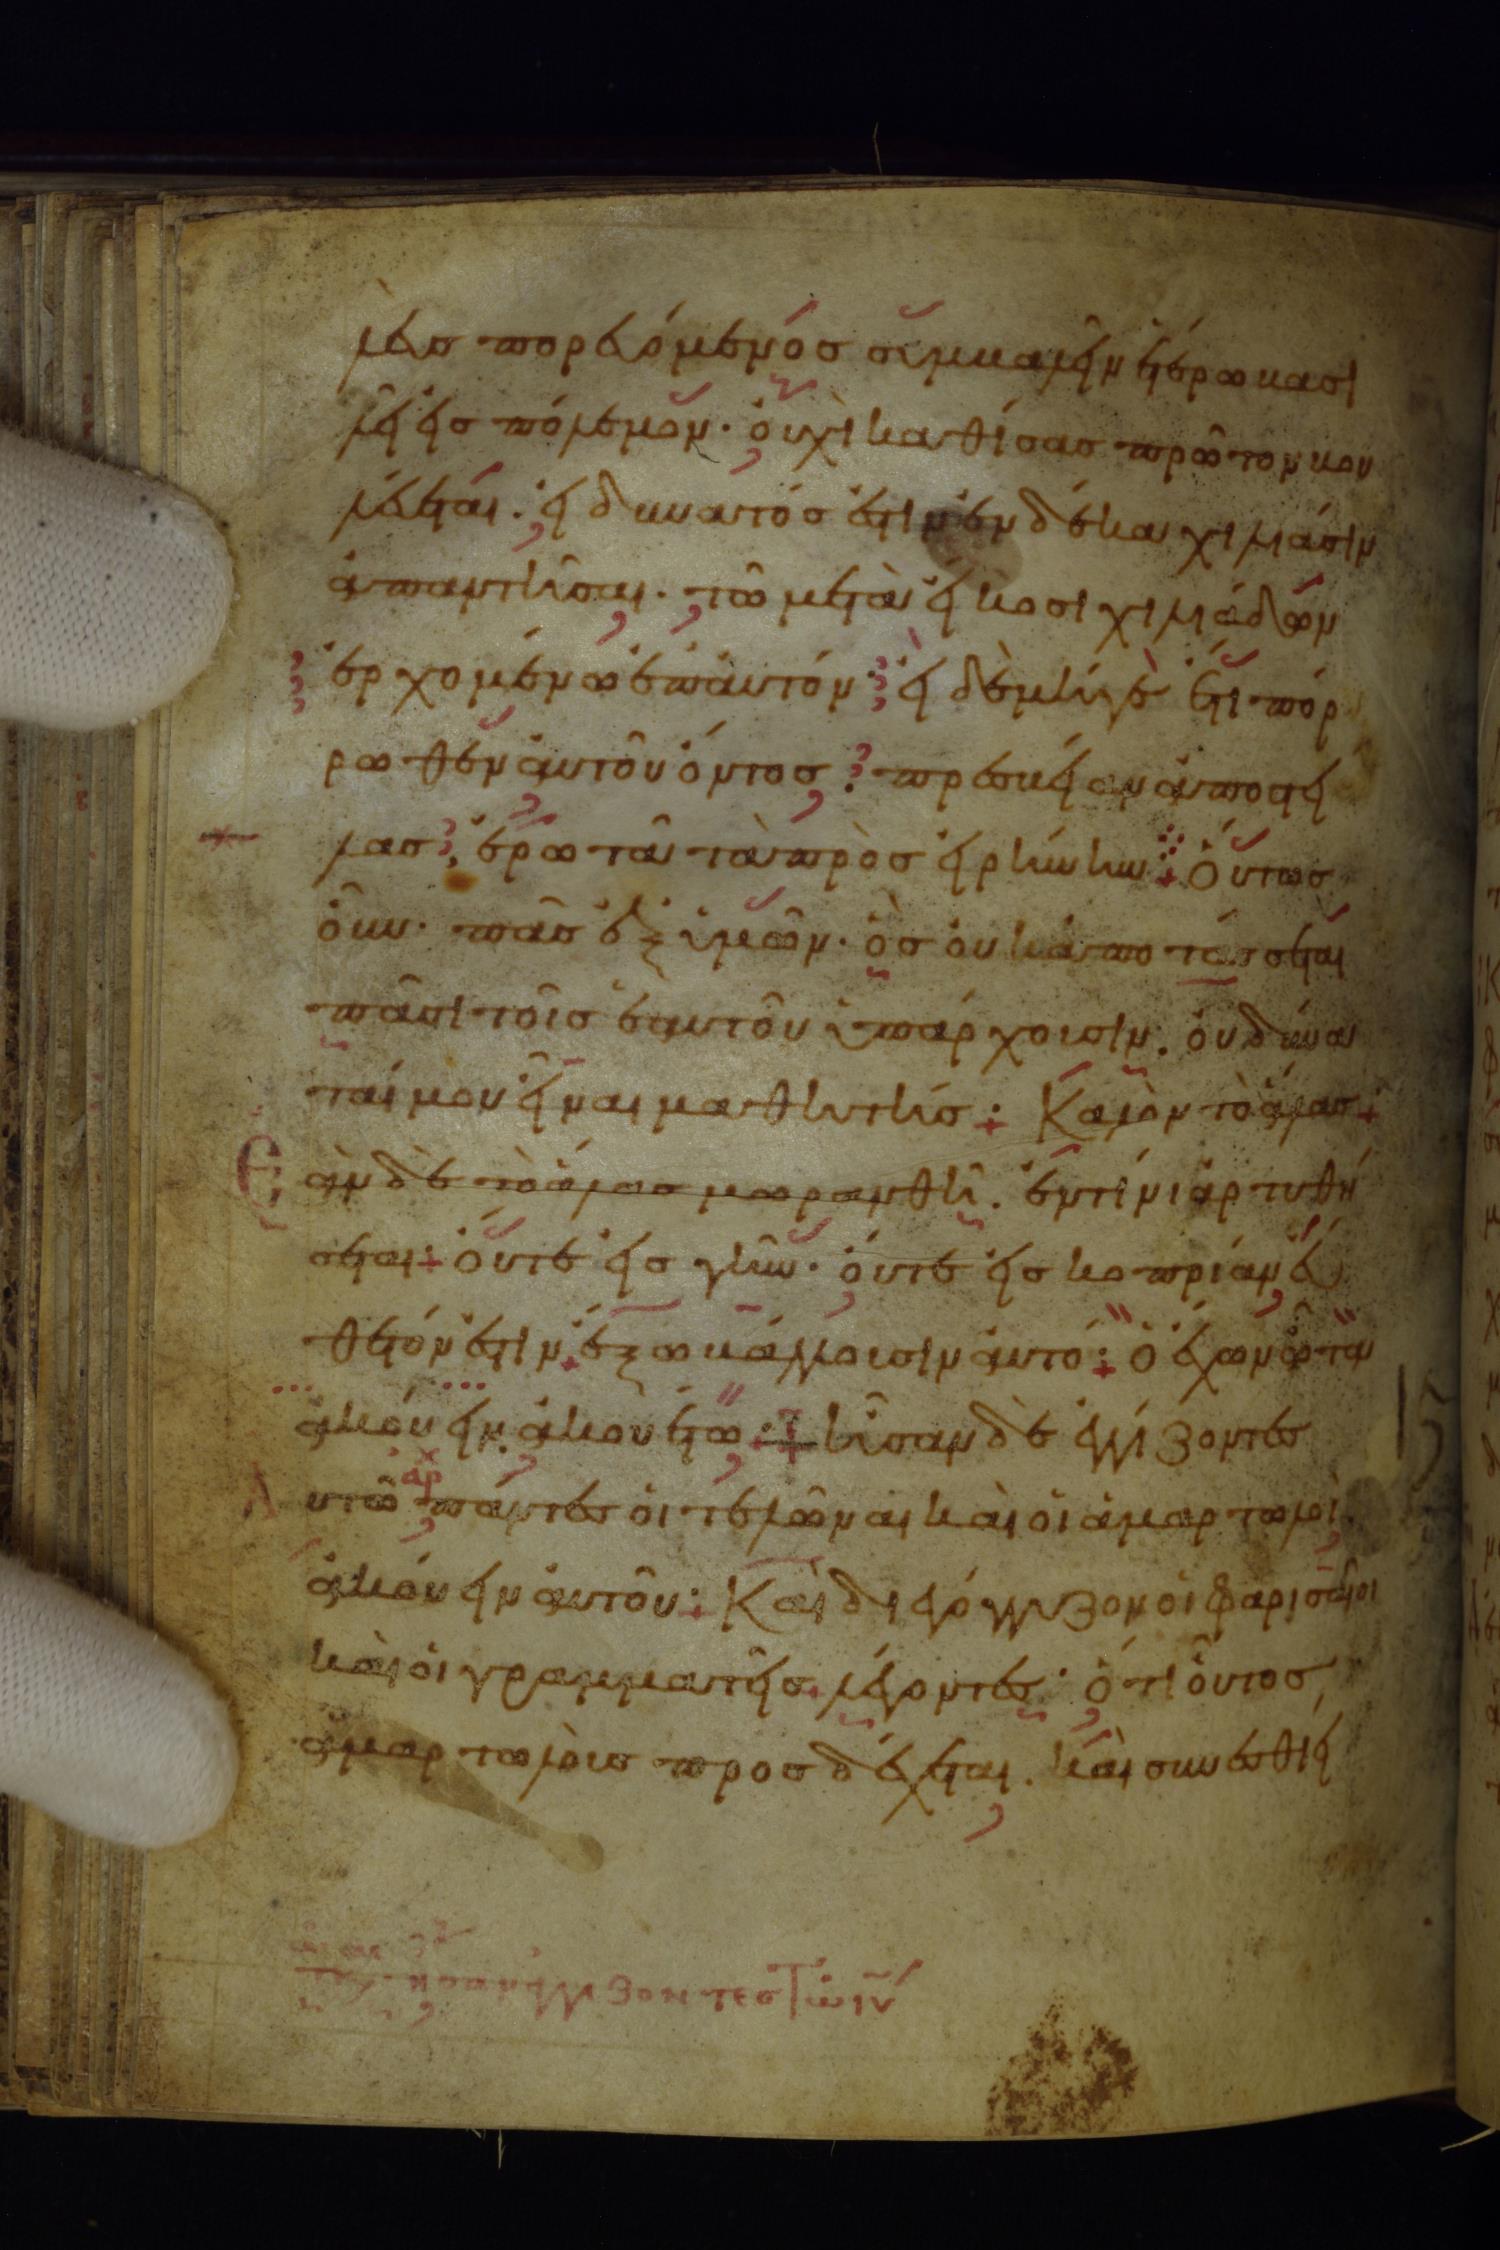 λεὺς πορευόμενος συμβαλεῖν ἑτέρω βασι
λεῖ εἰς πόλεμον· οὐχὶ καθίσας πρῶτον βου
λεύεται· εἰ δυνατός ἐστιν ἐν δέκα χιλιάσιν
ἀπαντῆσαι· τῶ μετὰ εἴκοσι χιλιάδων
ἐρχομένω ἐπαυτόν· εἰ δὲ μήγε ἔτι πόρ
ρωθεν αὐτοῦ ὄντος· πρεσβείαν ἀποστεί
λας· ἐρωτᾶ τὰ πρὸς εἰρήνην· Οὕτως
οὖν· πᾶς ἐξ ὑμῶν· ὃς οὐκ ἀποτάσσεται
πᾶσι τοῖς ἑαυτοῦ ὑπάρχουσιν· οὐ δύνα
ταί μου εἶναι μαθητής· Καλὸν τὸ ἅλας
Ἐὰν δὲ τὸ ἅλας μωρανθῆ· ἐν τίνι ἀρτυθή
σεται· οὔτε εἰς γῆν· οὔτε εἰς κοπρίαν εὔ
θετόν ἐστιν· ἔξω βάλλουσιν αὐτό· Ὁ ἔχων ὦτα
ἀκούειν ἀκουέτω· ἦσαν δὲ ἐγγίζοντες
Αυτῶ πάντες οἱ τελῶναι καὶ οἱ ἁμαρτωλοὶ
ἀκούειν αὐτοῦ· Καὶ διεγόγγυζον οἱ φαρισαῖοι
καὶ οἱ γραμματεῖς λέγοντες· ὅτι οὗτος
ἁμαρτωλοὺς προσδέχεται· καὶ συνεσθίει
ἐγγίζοντες τῶ ιυ